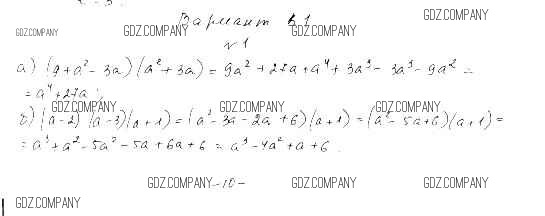 GDZ.COMPANY
Вариант В1
GDZ.COMPANY GDZ.COMPANY GDZ.COMPANY
№1
а) (9+a²-3a)(a²+3a) = 9a²+27a+a⁴+3a³-3a³-9a² =
= a⁴+27a;
GDZ.COMPANY GDZ.COMPANY GDZ.COMPANY
б) (a-2)(a-3)(a+1) = (a²-3a-2a+6)(a+1) = (a²-5a+6)(a+1) =
= a³+a²-5a²-5a+6a+6 = a³-4a²+a+6.
GDZ.COMPANY -10- GDZ.COMPANY GDZ.COMPANY
GDZ.COMPANY